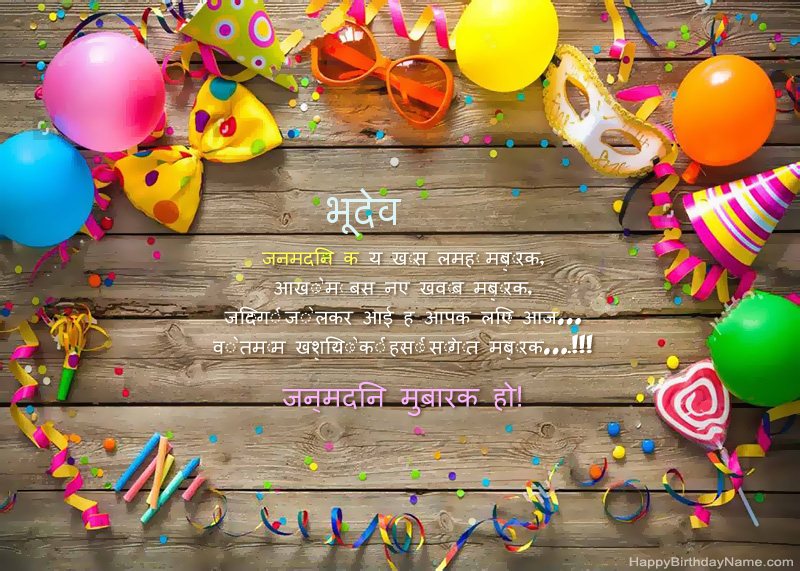 भूदेव
जनमदनि क य खास लमहा मबारक,
आखों म बस नए खवाब मबारक,
जदिगी जो लेकर आई ह आपक लएि आज...
वो तमाम खशयिों की हसीं सौगात मबारक....!!!
जन्मदनि मुबारक हो!
HappyBirthdayName.com